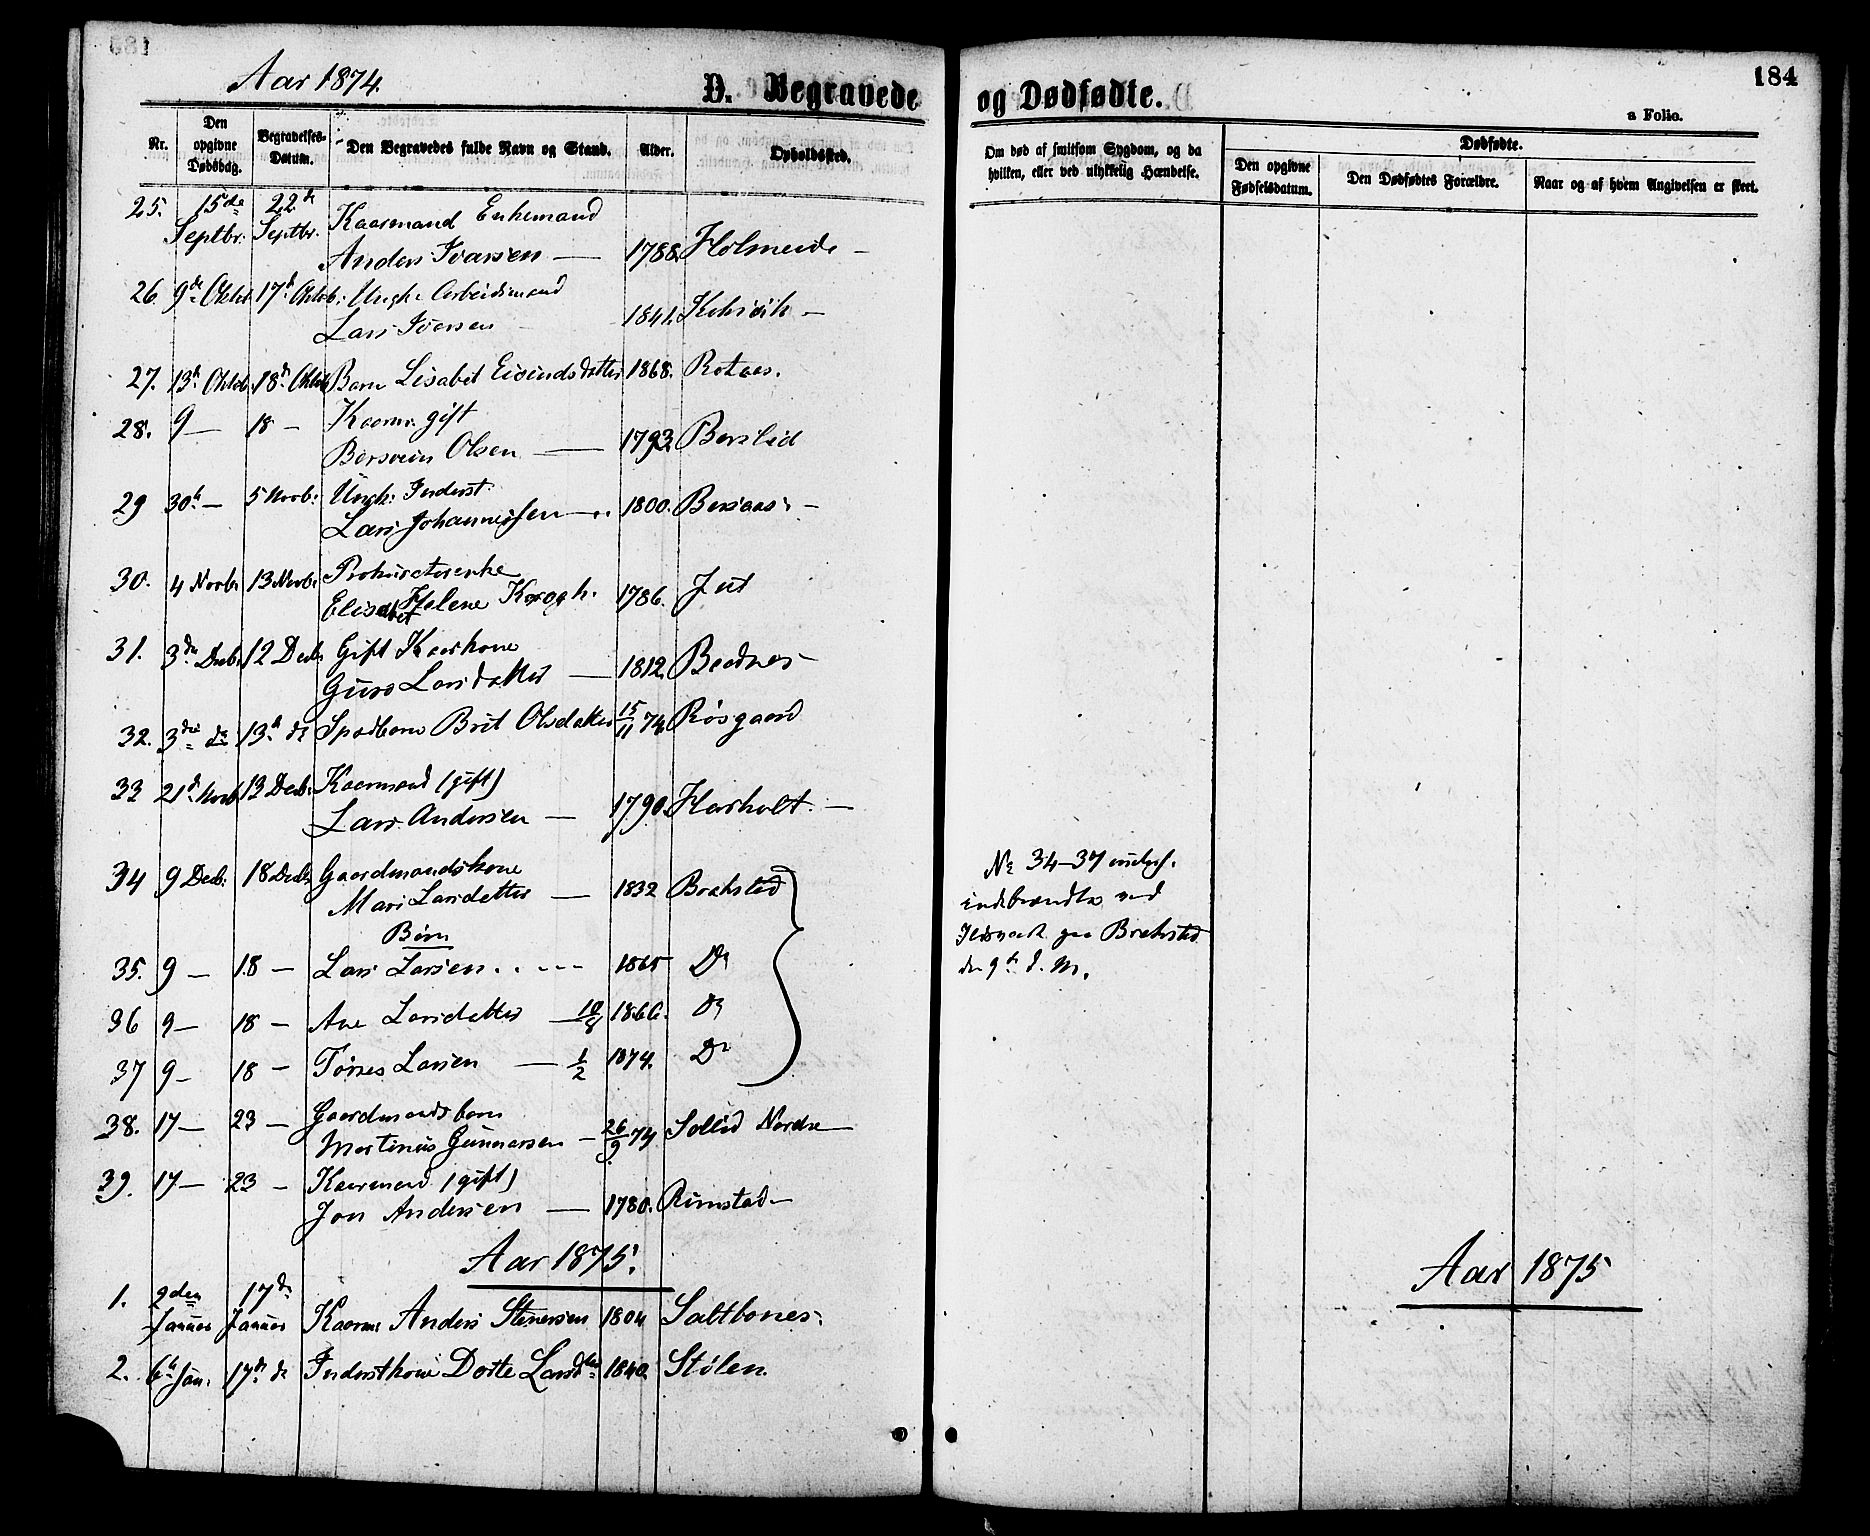 Aar 1874.
D. Begravede og Dødfødte.
184
a Folio.
Nr.
Den opgivne Dødsdag.
Begravelses-Datum.
Den Begravedes fulde Navn og Stand.
Alder.
Opholdssted.
Om død af smitsom Sygdom, og da hvilken, eller ved ulykkelig Hændelse.
Dødfødte.
Den opgivne Fødselsdatum.
Den Dødfødtes Forældre.
Naar og af hvem Angivelsen er skeet.
25. 15de Septbr. 22d Septbr. Kaarmand Enkemand
Anders Ivarsen — 1788. Holmeide —
26. 9de Oktbr. 17d Oktob: Ungk: Arbeidsmand
Lars Iversen 1841.
27. 13d Oktob. 18d Oktob Barn Lisabet Eivindsdatter 1868. Rotaas.
28. 9 — 18 — Kaarm: gift
Olsen — 1793. Berslid
29 30d — 5 Novb: Ungk: Inderst
Lars Johannessen 1800. —
30. 4 Novb. 13 Novb. Prokuratorenke
Elisabet Helene Krogh. 1786. Jut
31. 3de Decb. 12 Decb. Gift Kaarkone
Guro Larsdatter — 1812. Baadnes
32. 3die ds 13d ds Spædbarn Brit Olsdatter 15/11 74. Røsgaard
33 21d Novb. 13 Decb. Kaarmand (gift)
Lars Andersen — 1790. Harholt. —
34 9 Decb. 18 Decb. Gaardmandskone
Mari Larsdatter — 1832 Brakstad
No 34–37 inclus.
indebrændte ved
Ildsvaade paa Brakstad
den 9d d. M.
Børn
35. 9 — 18 — Lars Larsen 1865 Do
36 9 — 18 — Ane Larsdatter — 10/8 1866. Do
37 9 — 18 — Larsen — 1/2 1874. Do
38. 17 — 23 — Gaardmandsbarn
Martinus Gunnarsen — 26/9 74. Sollid Nordre —
39. 17 — 23 — Kaarmand (gift)
Jon Andersen — 1780. Rimstad —
Aar 1875.
Aar 1875
1. 2den Januar 17d Januar Kaarm: Anders Stenersen 1804 Saltbones.
2. 6d Jan. 17d ds Inderstkone Dorte Larsdtr 1840. Stølen.